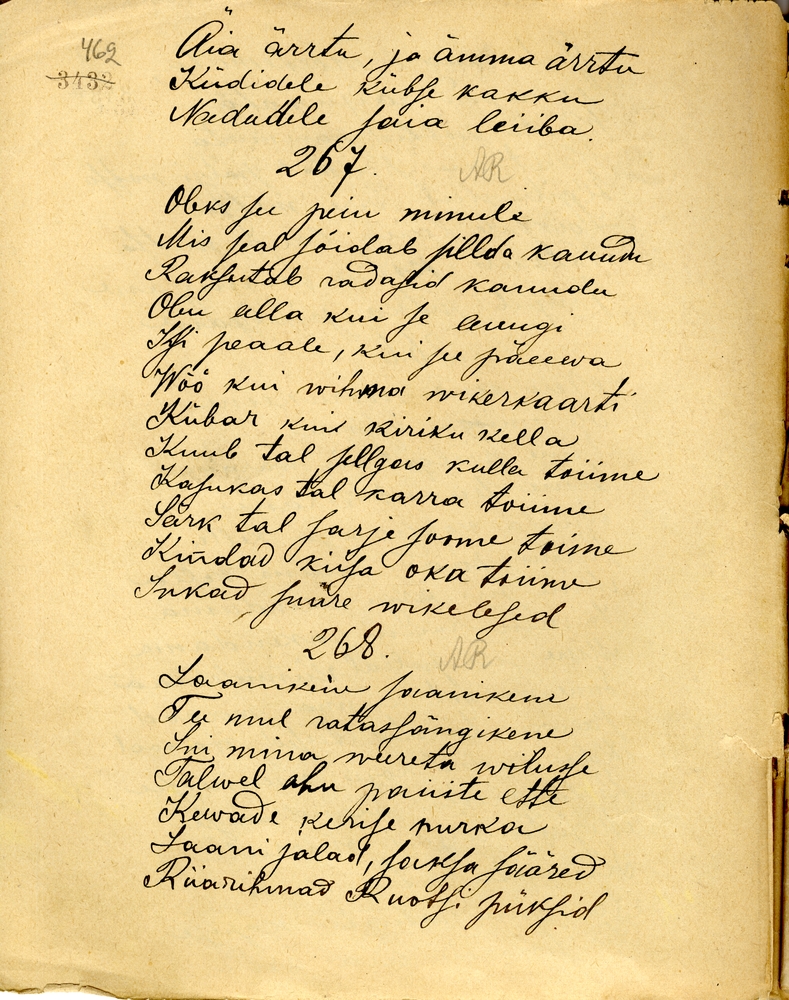 469
3432
Äia ärrtu, ja ämma ärrtu
Küdidele kübse kakku
Nadudele saia leiiba.
267. AR
Oleks se peiu minule
Mis seal sõidab silda kauudu
Raksutab radasid kauudu
Obu alla kui se
Issi peaale, kui se päeewa
Wöö kui wihma wikerkaarti
Kübar kui kiriku kella
Kuub tal sellgas kulla toiime
Kasukas tal karra toiime
Särk tal sarje soome toime
Kindad kisa oka toiime
Sukad suure wikelesed
268. AR
Jaanikene jaanikene
Tee mul ratassängikene
Sui mina weereta wilusse
Talwel ahu paiiste ette
Kewade kerise nurka
Jaani jalad, saksa sääred
Riiarihmad Ruotsi püksid